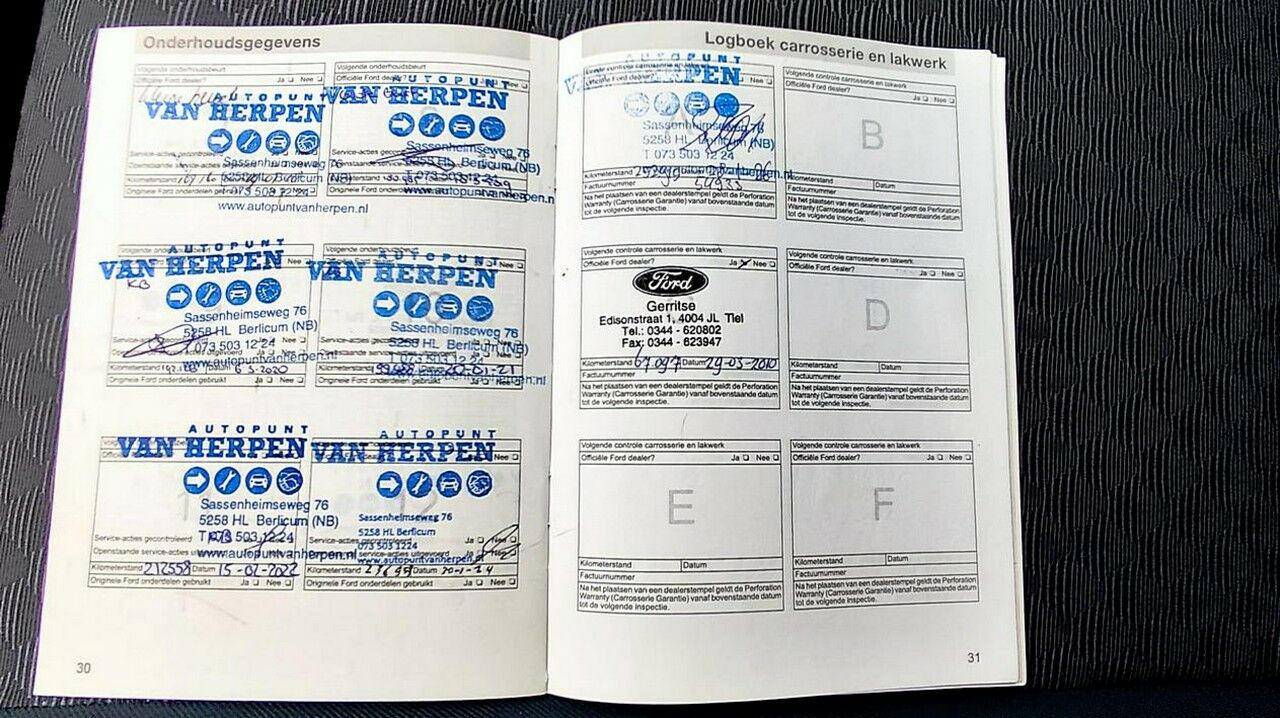 Onderhoudsgegevens
Volgende onderhoudsbeurt
Officiële Ford dealer? Ja Nee
AUTOPUNT
VAN HERPEN
Service-acties gecontroleerd
Sassenheimseweg 76
5258 HL Berlicum (NB)
Kilometerstand
Originele Ford onderdelen
073 503 12 24
www.autopuntvanherpen.nl
Volgende onderhoudsbeurt
Officiële Ford
AUTOPUNT
VAN HERPEN
Sassenheimseweg 76
5258 HL Berlicum (NB)
T 073 503 12 24
Kilometerstand
Originele Ford onderdelen
www.autopuntvanherpen.nl
AUTOPUNT
VAN HERPEN
Nee
KB
Sassenheimseweg 76
5258 HL Berlicum (NB)
T 073 503 12 24
www.autopuntvanherpen.nl
Kilometerstand Datum 6-3-2020
Originele Ford onderdelen gebruikt Ja Nee
AUTOPUNT
VAN HERPEN
Nee
Sassenheimseweg 76
5258 HL Berlicum (NB)
T 073 503 12 24
www.autopuntvanherpen.nl
Kilometerstand Datum 20-01-21
Originele Ford onderdelen gebruikt
AUTOPUNT
VAN HERPEN
Sassenheimseweg 76
5258 HL Berlicum (NB)
Service-acties gecontroleerd
T 073 503 12 24
Openstaande service-acties
www.autopuntvanherpen.nl
Kilometerstand 212558 Datum 15-02-2022
Originele Ford onderdelen gebruikt Ja Nee
AUTOPUNT
VAN HERPEN
Nee
12
Sassenheimseweg 76
5258 HL Berlicum
Service-acties gecontroleerd Ja Nee
073 503 1224
service-acties uitgevoerd Ja Nee
www.autopuntvanherpen.nl
Kilometerstand Datum 20-1-24
Originele Ford onderdelen gebruikt Ja Nee
30
Logboek carrosserie en lakwerk
AUTOPUNT
VAN HERPEN
Nee
Sassenheimseweg 76
5258 HL Berlicum (NB)
T 073 503 12 24
Kilometerstand
Factuurnummer
Na het plaatsen van een dealerstempel geldt de Perforation
Warranty (Carrosserie Garantie) vanaf bovenstaande datum
tot de volgende inspectie.
Volgende controle carrosserie en lakwerk
Officiële Ford dealer? Ja Nee
B
Kilometerstand Datum
Factuurnummer
Na het plaatsen van een dealerstempel geldt de Perforation
Warranty (Carrosserie Garantie) vanaf bovenstaande datum
tot de volgende inspectie.
Volgende controle carrosserie en lakwerk
Officiële Ford dealer? Ja Nee
Ford
Gerritse
Edisonstraat 1, 4004 JL Tiel
Tel.: 0344 - 620802
Fax: 0344 - 623947
Kilometerstand 67097 Datum 29-03-2010
Factuurnummer
Na het plaatsen van een dealerstempel geldt de Perforation
Warranty (Carrosserie Garantie) vanaf bovenstaande datum
tot de volgende inspectie.
Volgende controle carrosserie en lakwerk
Officiële Ford dealer? Ja Nee
D
Kilometerstand Datum
Factuurnummer
Na het plaatsen van een dealerstempel geldt de Perforation
Warranty (Carrosserie Garantie) vanaf bovenstaande datum
tot de volgende inspectie.
Volgende controle carrosserie en lakwerk
Officiële Ford dealer? Ja Nee
E
Kilometerstand Datum
Factuurnummer
Na het plaatsen van een dealerstempel geldt de Perforation
Warranty (Carrosserie Garantie) vanaf bovenstaande datum
tot de volgende inspectie.
Volgende controle carrosserie en lakwerk
Officiële Ford dealer? Ja Nee
F
Kilometerstand Datum
Factuurnummer
Na het plaatsen van een dealerstempel geldt de Perforation
Warranty (Carrosserie Garantie) vanaf bovenstaande datum
tot de volgende inspectie.
31